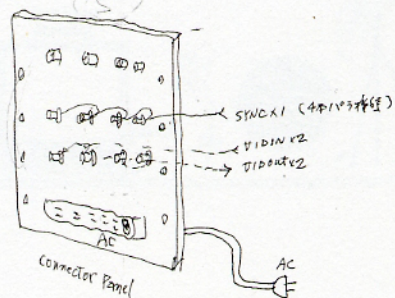 SYNC×1 (4本パラ接続)
VIDIN×2
VIDout×2
AC
AC
Connector Panel